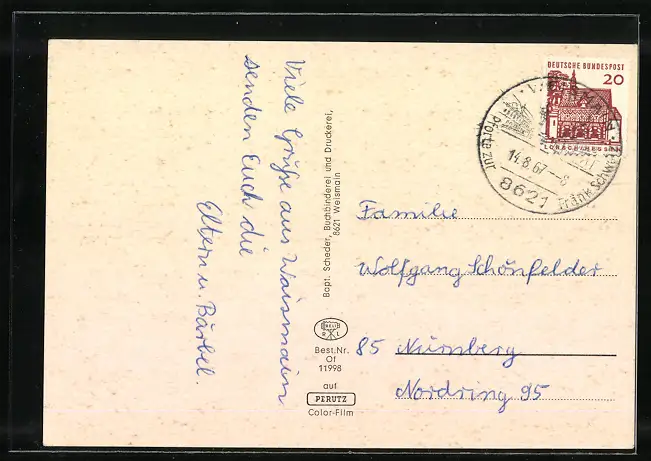 Viele Grüße aus Waismain
senden Euch die
Eltern u. Bärbel.
Bapt. Scheder, Buchbinderei und Druckerei,
8621 Weismain
Best.Nr.
Of
11998
auf
PERUTZ
Color-Film
DEUTSCHE BUNDESPOST
20
Pforte zur
14.8.67--8
8621
Familie
Wolfgang Schönfelder
85 Nürnberg
Nordring 95